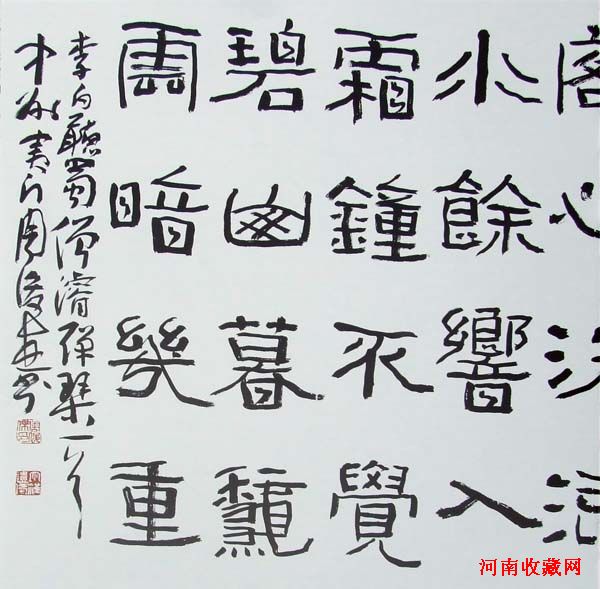 客心洗流
水餘響入
霜鐘不覺
碧山暮龝
雲暗幾重
李白聽蜀僧濬彈琴一首
周俊杰書
河南收藏网